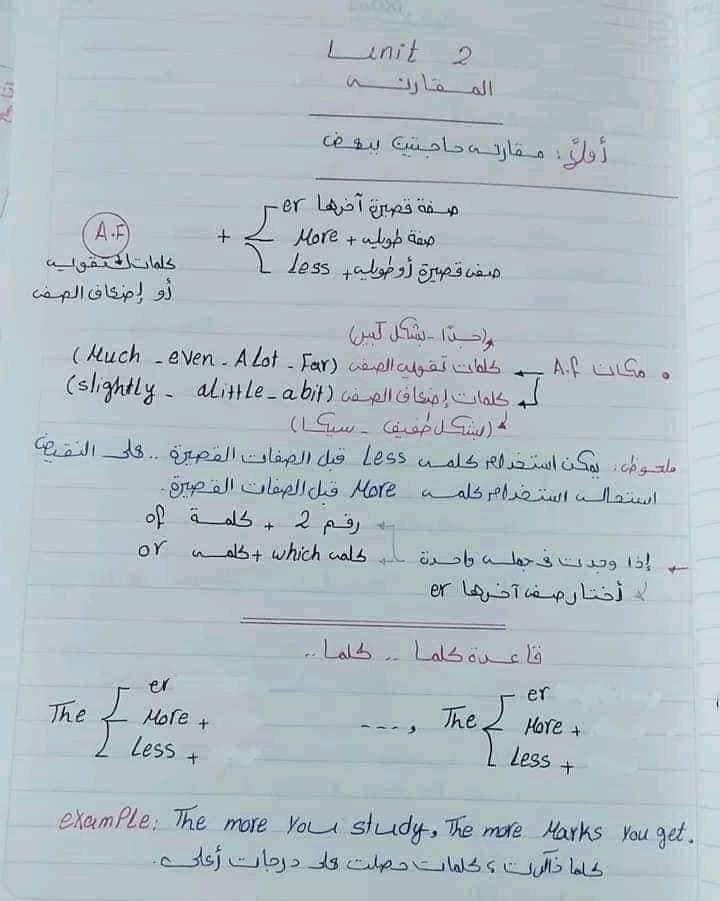 Unit 2
المقارنة
أولاً: مقارنة حاجتين ببعض
er صفة قصيرة آخرها
A.F + More + صفة طويلة
كلمات لتقوية Less + صفة قصيرة أو طويلة
أو إضعاف الصفة
(جدًا - بشكل كبير)
• مكان A.F ← كلمات تقوية الصفة (Much - even - A Lot - Far)
كلمات إضعاف الصفة (slightly - alittle - abit)
(بشكل طفيف - سيكا)
ملحوظة: يمكن استخدام كلمة Less قبل الصفات القصيرة .. على النقيض
استحالة استخدام كلمة More قبل الصفات القصيرة.
رقم 2 + كلمة of
← إذا وجدت في جملة واحدة كلمة which + كلمة or
أختار صفة آخرها er
قاعدة كلما .. كلما ..
er er
The More + ---, The More +
Less + Less +
example: The more You study, The more Marks You get.
كلما ذاكرت ؟ كلمات حصلت على درجات أعلى.